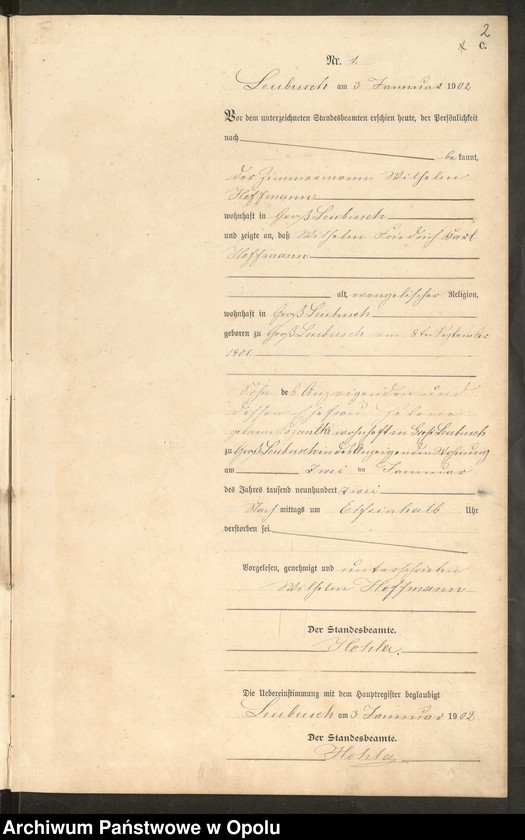 2
C.
Nr. 1.
Leubusch am 3 Januar 1902
Vor dem unterzeichneten Standesbeamten erschien heute, der Persönlichkeit
nach
be kannt,
der Zimmermann Wilhelm
Hoffmann
wohnhaft in Groß Leubusch
und zeigte an, daß Wilhelm Friedrich Karl
Hoffmann
alt, evangelischer Religion,
wohnhaft in Groß Leubusch
geboren zu Groß Leubusch am 8ten September
1901.
Sohn des Anzeigenden und
dessen Ehefrau Helene
geborene wohnhaft in Groß Leubusch
zu Groß Leubusch in des Anzeigenden Wohnung
am Zwei ten Januar
des Jahres tausend neunhundert zwei
Nach mittags um Uhr
verstorben sei.
Vorgelesen, genehmigt und unterschrieben
Wilhelm Hoffmann
Der Standesbeamte.
Die Uebereinstimmung mit dem Hauptregister beglaubigt
Leubusch am 3 Januar 1902
Der Standesbeamte.
Archiwum Państwowe w Opolu